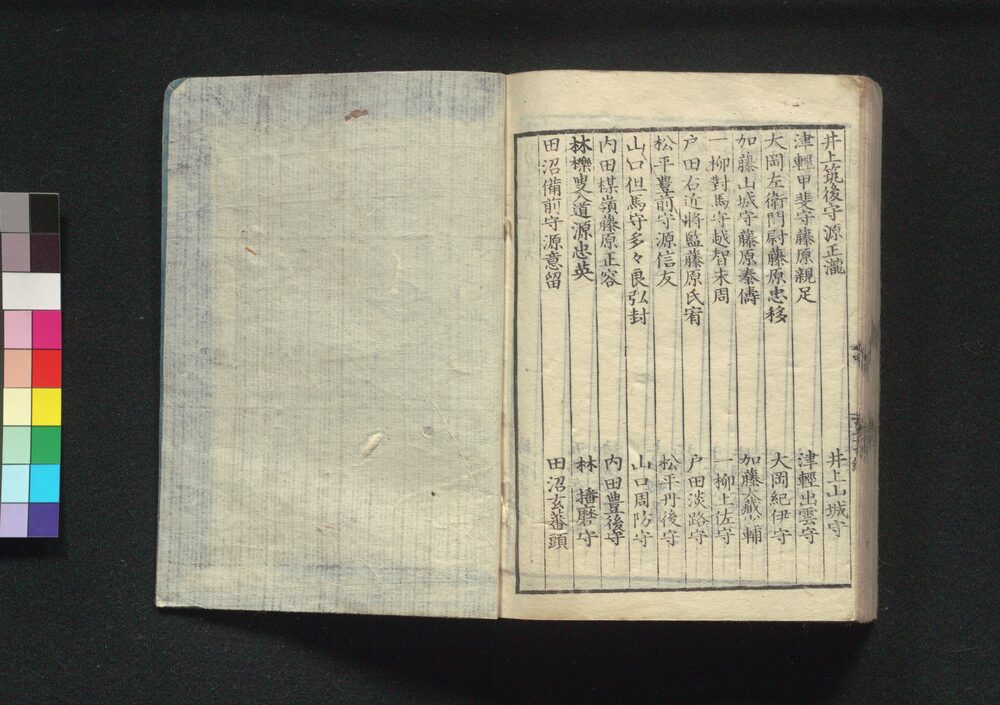 井上筑後守源正瀧　井上山城守
津輕甲斐守藤原親足　津輕出雲守
大岡左衛門尉藤原忠移　大岡紀伊守
加藤山城守藤原泰儔　加藤大藏少輔
一柳對馬守越智末周　一柳土佐守
戸田右近將監藤原氏宥　戸田淡路守
松平豊前守源信友　松平丹後守
山口但馬守多々良弘封　山口周防守
内田楳嶺藤原正容　内田豊後守
林櫟叟入道源忠英　林播磨守
田沼備前守源意留　田沼玄蕃頭